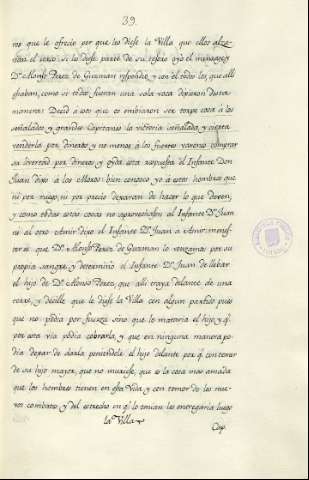 39.
no que le ofrecio por que les diese la Villa que ellos alza-
rian el cerco si les diese parte de su tesoro oydo el mensage
Dn. Alonso Perez de Guzman respondio, y con el todos los, que alli
estaban, como si todos fueran una sola voca dixeron desta
manera: Decid a los que os embiaron ser torpe cosa a los
señalados y grandes Capitanes la vitoria señalada, y cierta
venderla por dineros, y no menos a los fuertes varones comprar
su livertad por dineros y oyda esta respuesta el Infante Don
Juan dixo a los Moros: bien conozco yo a estos hombres que
ni por ruego, ni por precio dexaran de hacer lo que deven,
y como todas estas cosas no aprovechasen al Infante Dn. Juan
ni al otro Amir dixo el Infante Dn. Juan a
que Dn. Alonso Perez de Guzman lo venzamos por su
propia sangre, y determinó el Infante Dn. Juan de llebar
el hijo de Dn. Alonso Perez, que alli traya delante de una
torre, y decille que le diese la Villa con algun partido pues
que no podia por fuerza sino que le mataria el hijo, y q.
por esta via podia cobrarla, y que en ninguna manera po-
dia dejar de darla poniendole el hijo delante por q. con temor
de su hijo mayor, que no muriese, que es la cosa mas amada
que los hombres tienen en esta Vida, y con temor de los nue-
vos combates y del estrecho en q. lo tenian les entregaria luego
la Villa
Cap.